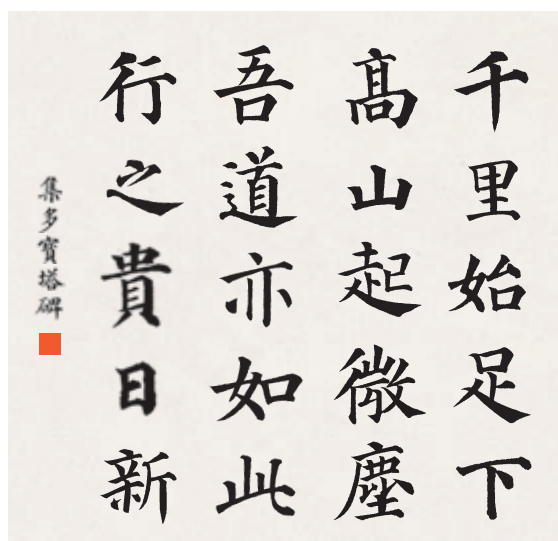 千里始足下
髙山起微塵
吾道亦如此
行之貴日新
集多寶塔碑